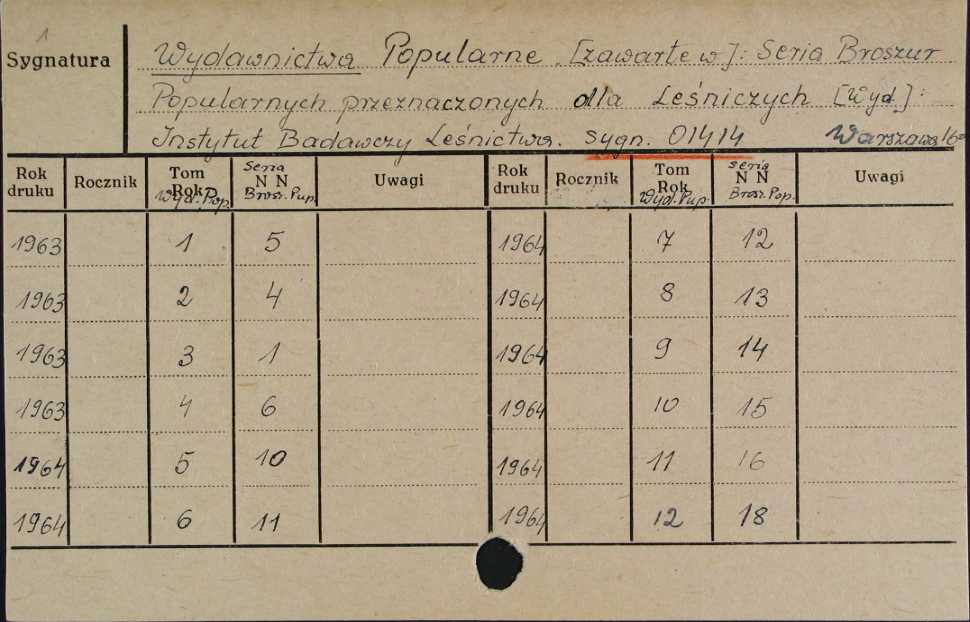 1
Sygnatura
Wydawnictwa Popularne [zawarte w]: Seria Broszur
Popularnych przeznaczonych dla Leśniczych [Wyd.]:
Instytut Badawczy Leśnictwa. sygn. 01414 Warszawa
Rok druku Rocznik Tom Rok Wyd. Pop. seria N N Brosz. Pup. Uwagi Rok druku Rocznik Tom Rok Wyd. Pup. seria N N Brosz. Pop. Uwagi
1963 1 5 1964 7 12
1963 2 4 1964 8 13
1963 3 1 1964 9 14
1963 4 6 1964 10 15
1964 5 10 1964 11 16
1964 6 11 1964 12 18